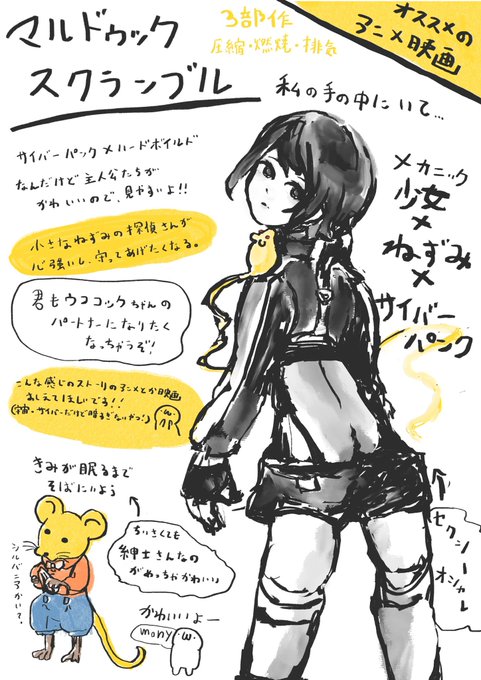 マルドゥック
スクランブル
3部作
圧縮・燃焼・排気
オススメの
アニメ映画
私の手の中にいて…
サイバーパンク×ハードボイルド
なんだけど主人公たちが
かわいいので、見やすいよ!!
小さなねずみの探偵さんが
心強いし、守ってあげたくなる。
君もウフコックちゃんの
パートナーになりたく
なっちゃうぞ!
こんな感じのストーリのアニメとか映画
おしえてほしいです!!
(宇宙・サイバーだけど暗すぎないかつ!)
メカニック
少女×
ねずみ×
サイバー
パンク
きみが眠るまで
そばにいよう
ちいさくても
紳士さんなの
がめっちゃかわいい
シルバニアかい?
かわいいよー
mony・ω・
セクシー
オシャレ